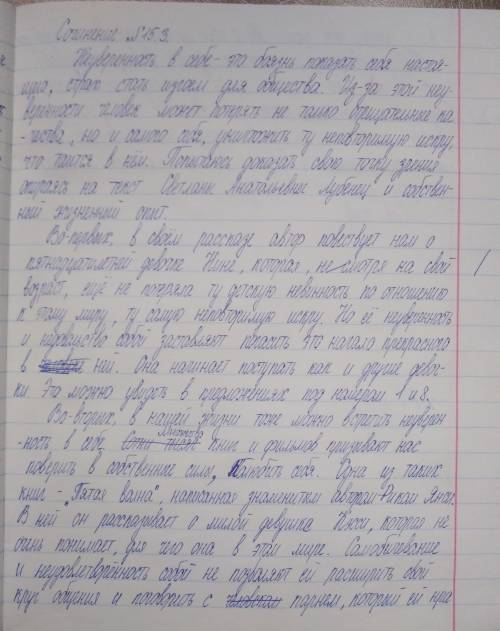 Сочинение №15.3.
Неуверенность в себе - это боязнь показать себя настоя-
щего, страх стать изгоем для общества. Из-за этой неу-
веренности человек может потерять не только отрицательные ка-
-чества, но и самого себя, уничтожить ту неповторимую искру,
что таится в нём. Попытаюсь доказать свою точку зрения
опираясь на текст Светланы Анатольевны Лубенец и собствен-
ный жизненный опыт.
Во-первых, в своём рассказе автор повествует нам о
пятнадцатилетней девочке Нине, которая, не смотря на свой
возраст, ещё не потеряла ту детскую невинность по отношению
к этому миру, ту самую неповторимую искру. Но её неуверенность
и недовольство собой заставляют погасить это начало прекрасного
в ней. Она начинает поступать как и другие девоч-
ки. Это можно увидеть в предложениях под номером 1 и 8.
Во-вторых, в нашей жизни тоже можно встретить неуверен
-ность в себе. Множество книг и фильмов призывают нас
поверить в собственные силы, полюбить себя. Одна из таких
книг - "Пятая волна", написанная знаменитым автором Риком Янси.
В ней он рассказывает о милой девушке Кэсси, которая не
очень понимает, для чего она в этом мире. Самобичевание
и неудовлетворённость собой не позволяют ей расширить свой
круг общения и поговорить с парнем, который ей нра